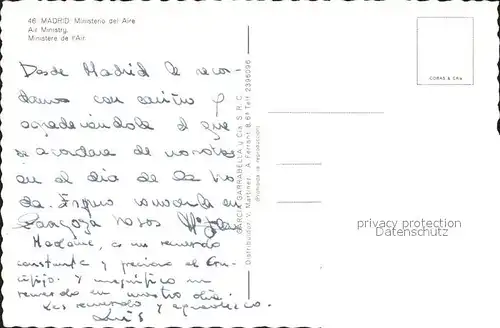 46 MADRID: Ministerio del Aire
Air Ministry.
Ministere de l'Air.
Desde Madrid le recor-
damos con cariño y
agradeciendole el que
se acordara de nosotros
en el dia de la bo
da.
Zaragoza besos
Madame, es un recuerdo
constante y precioso el Cru-
cifijo. Y magnifico un
recuerdo en nuestro dia.
Les recuerdo y agradezco.
Luis
GARCIA GARRABELLA y Cia. S. R. C.
Distribuidor: V. Martinez - A. Ferrant, 8, 6º Telf. 2396096
Prohibida la reproducción
privacy protection
watermark